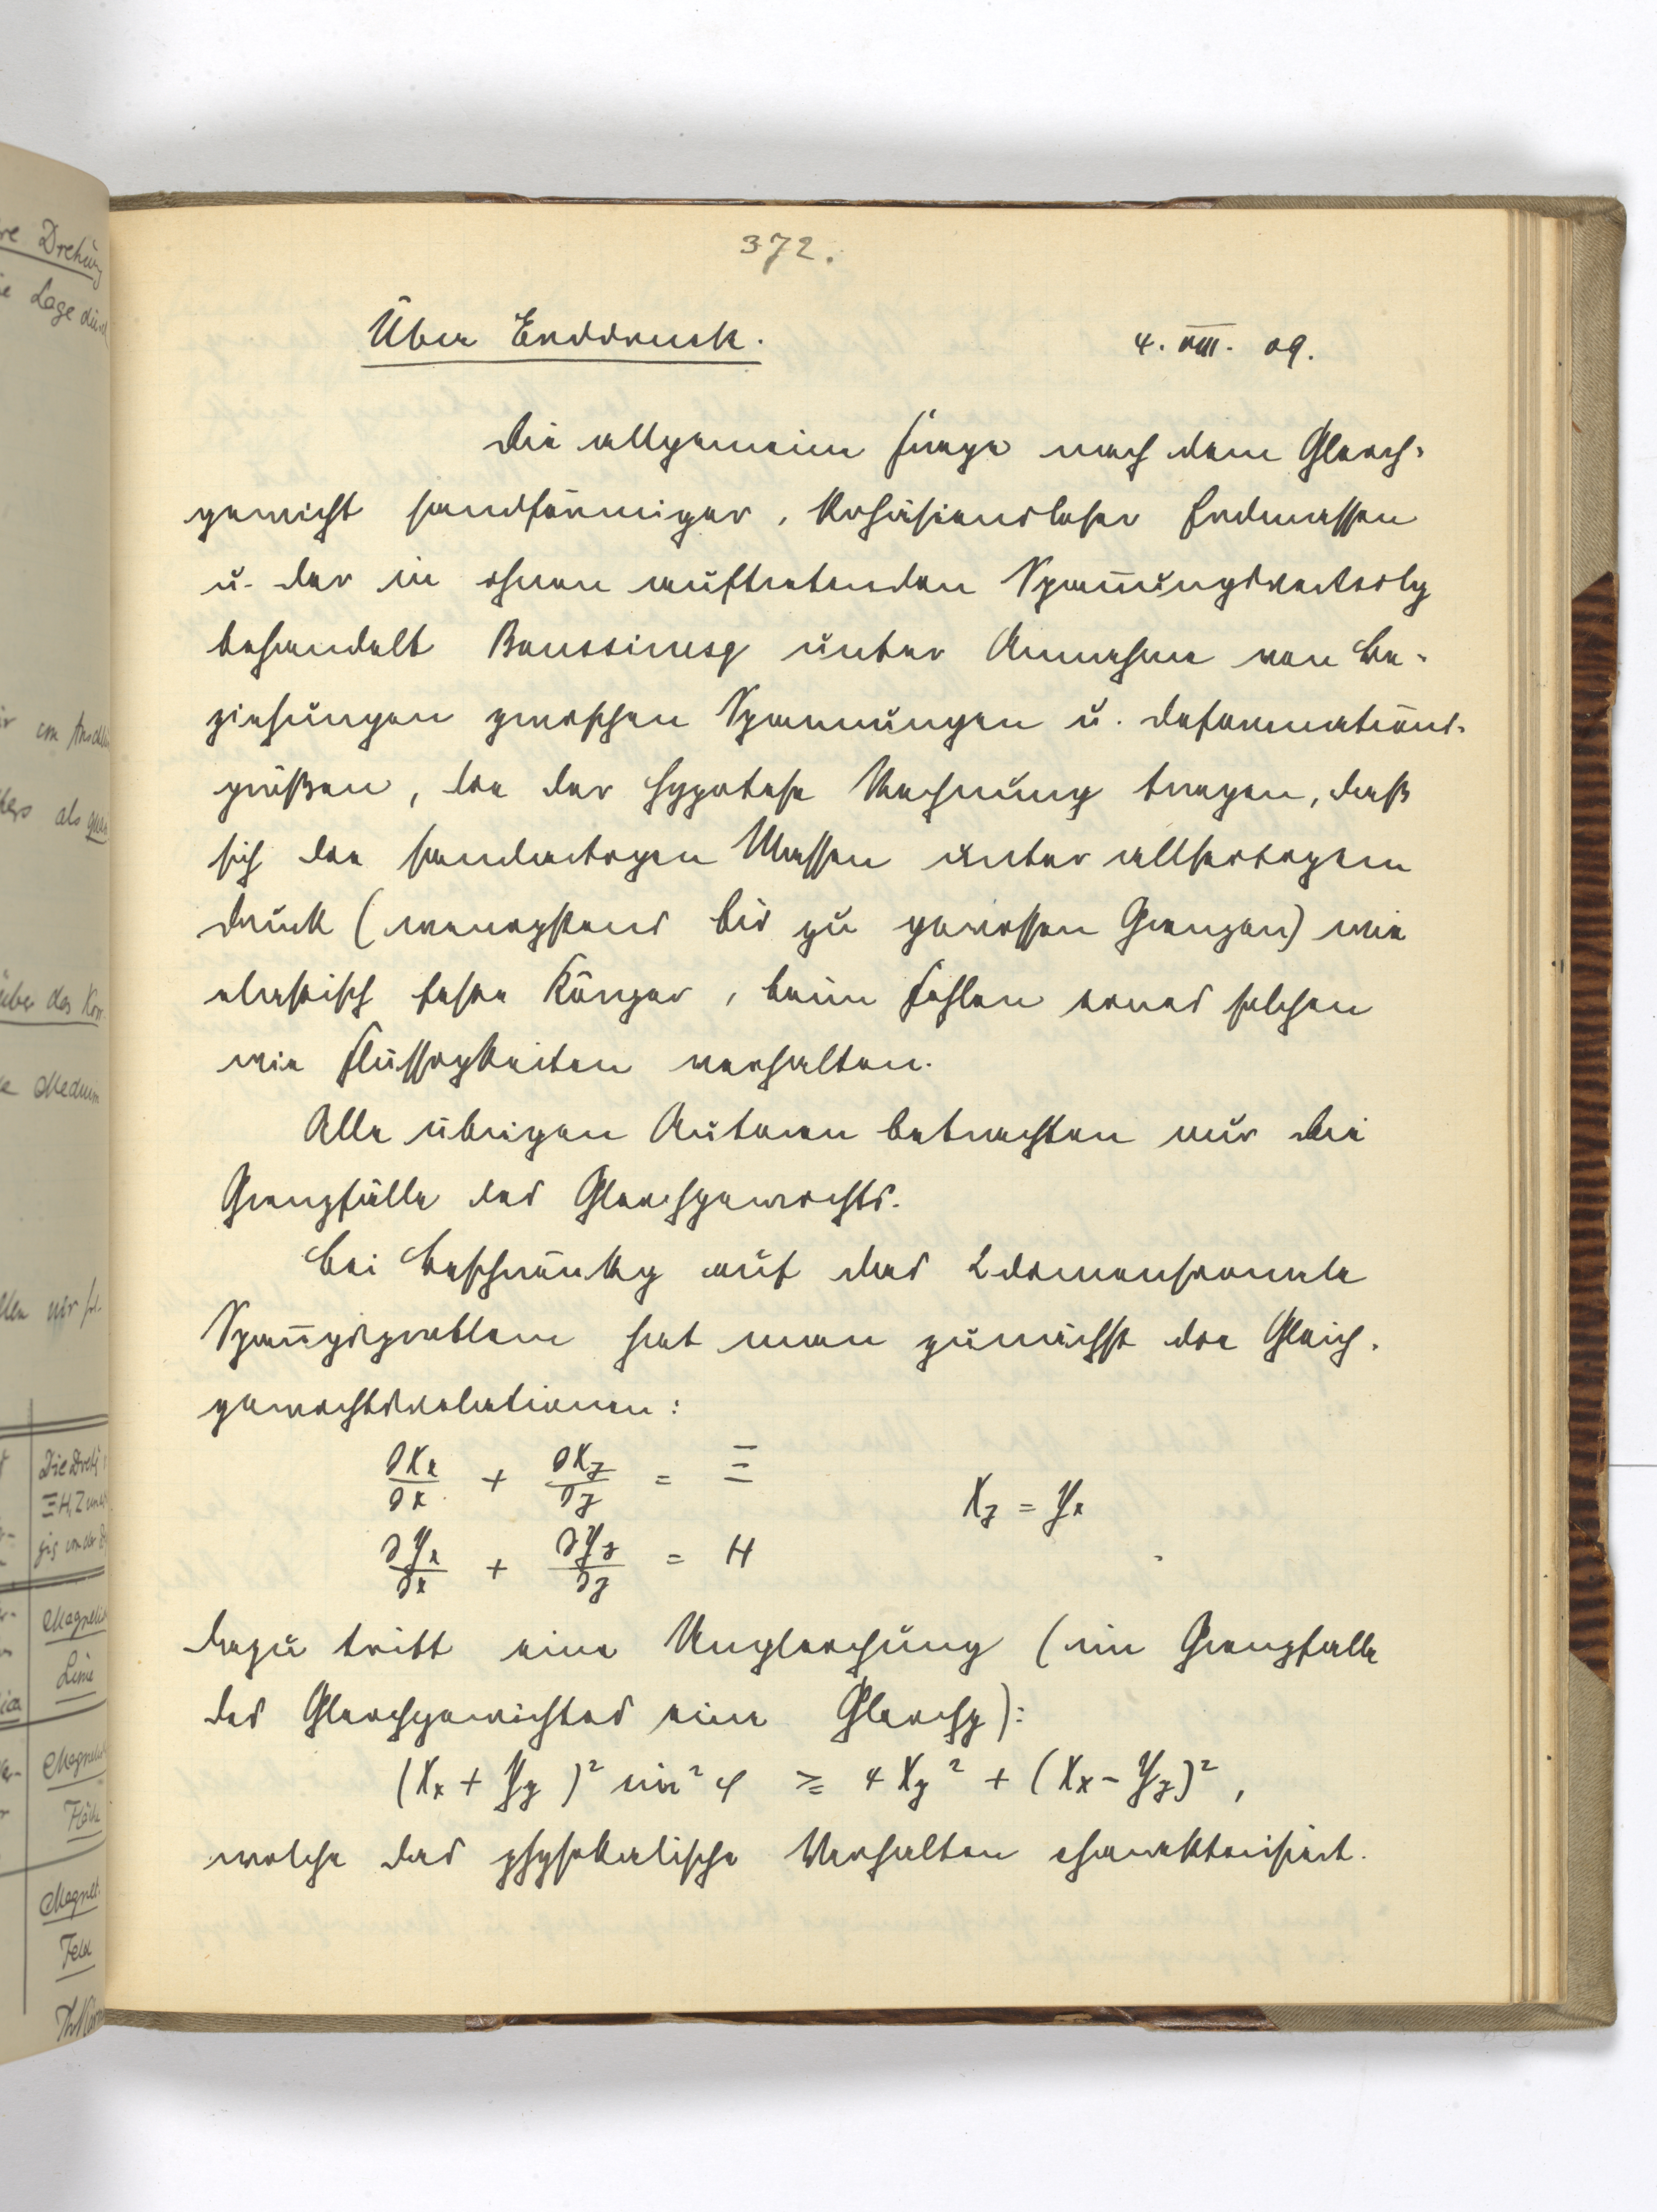 372.
Über Erddruck.
4. VIII. 09.
Die allgemeine Frage nach dem Gleich-
gewicht sandförmiger, kohäsionsloser Erdmassen
u. der in ihnen auftretenden Spannungsverteilg
behandelt Boussinesq unter Annahme von Be-
ziehungen zwischen Spannungen u. Deformations-
größen, die der Hypotese Rechnung tragen, daß
sich die sandartigen Massen unter allseitigem
Druck (wenigstens bis zu gewissen Grenzen) wie
elastisch feste Körper, beim Fehlen eines solchen
wie Flüssigkeiten verhalten.
Alle übrigen Autoren betrachten nur die
Grenzfälle des Gleichgewichts.
Bei Beschränkg auf das 2dimensionale
Spannungsproblem hat man zunächst die Gleich-
gewichtsrelationen:
∂Xx/∂x + ∂Xy/∂y = Ξ
Xy = Yx
∂Yx/∂x + ∂Yy/∂y = H
Dazu tritt eine Ungleichung (im Grenzfalle
des Gleichgewichtes eine Gleichg):
(Xx + Yy)² sin² φ ≥ 4 Xy² + (Xx - Yy)²,
welche das physikalische Verhalten charakterisiert.
re Drehung
ie Lage durch
als
über das
Medium
Die
Ξ H, Z
Magnetis
Linie
Magnetis
Magnet.
Feld